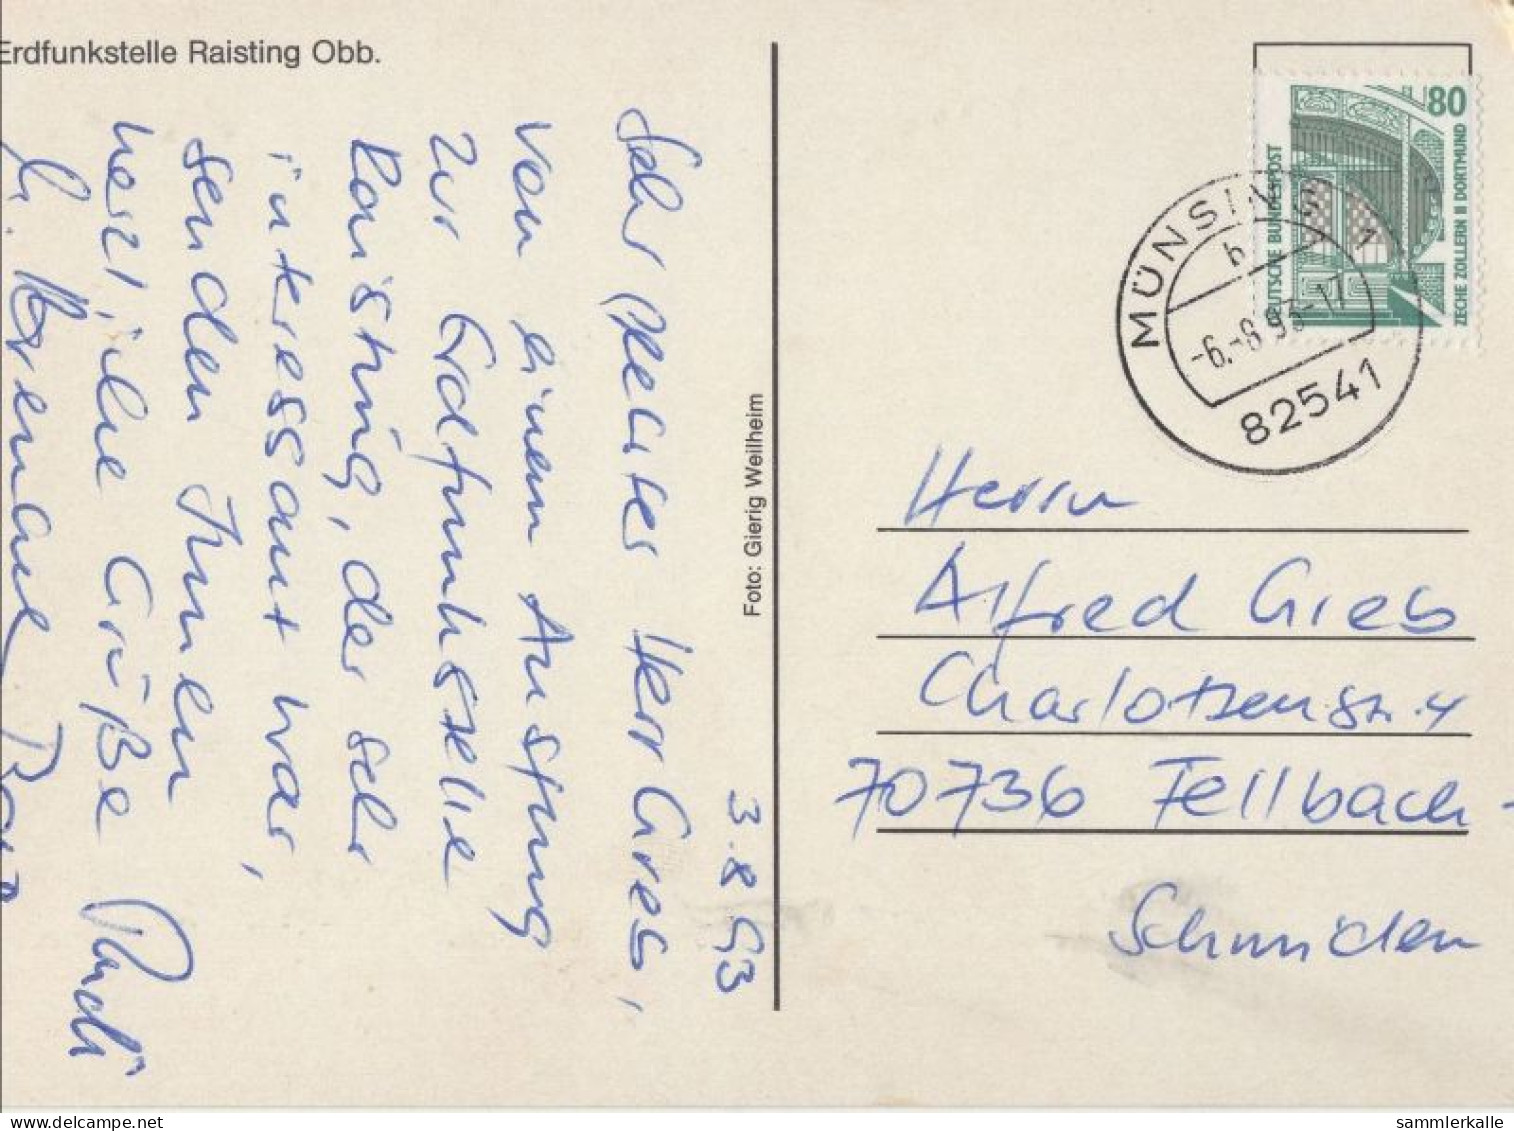 Erdfunkstelle Raisting Obb.
3.8.93
Sehr geehrter Herr Grieb,
von einem Ausflug
zur Erdfunkstelle
Raisting, der sehr
interessant war,
senden Ihnen
herzliche Grüße Rudi
Foto: Gierig Weilheim
80
DEUTSCHE BUNDESPOST
ZECHE ZOLLERN II DORTMUND
MÜNSING 1
b
-6.-8.93-17
82541
Herrn
Alfred Grieb
Charlottenstr. 4
70736 Fellbach-
Schmiden
delcampe.net
sammlerkalle